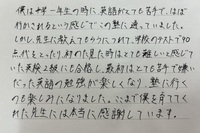 僕は中学一年生の時に英語がとても苦手で、ほぼ
行かされるという感じでこの塾に通っていました。
しかし、先生に教えてもらうにつれて、学校のテストで90
点代をとったり、初めて見た時はとても難しいと感じて
いた英検2級にも合格し、最初はとても苦手で嫌い
だった英語の勉強が楽しくなり、塾に行く
のも楽しみになりました。ここまで僕を育ててく
れた先生には本当に感謝しています。